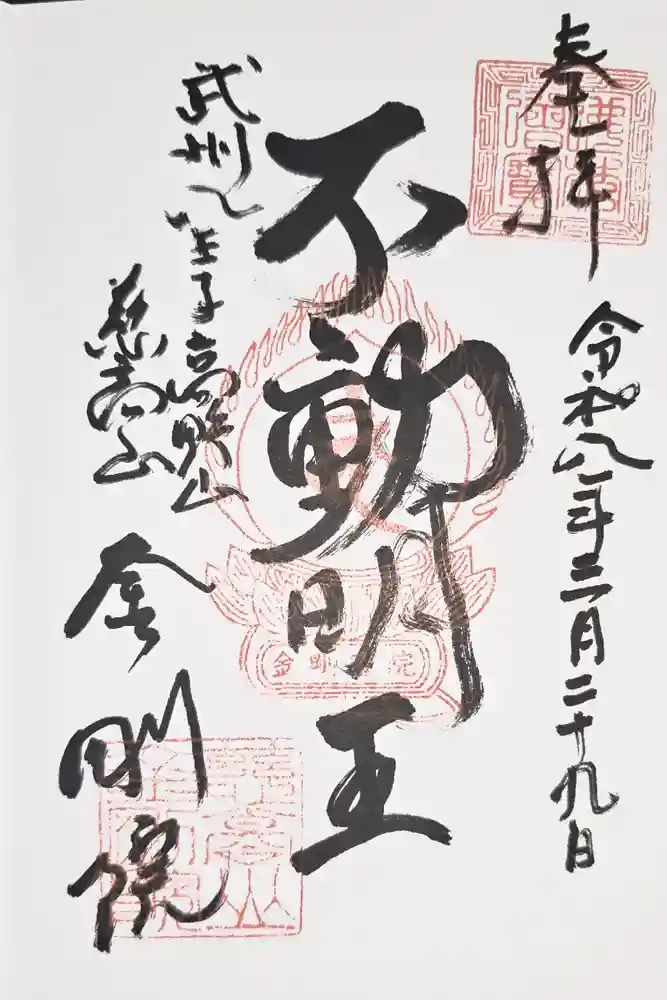 奉拝
令和八年三月二十九日
不動明王
武州八王子高野山
慈高山
金剛院
金剛院